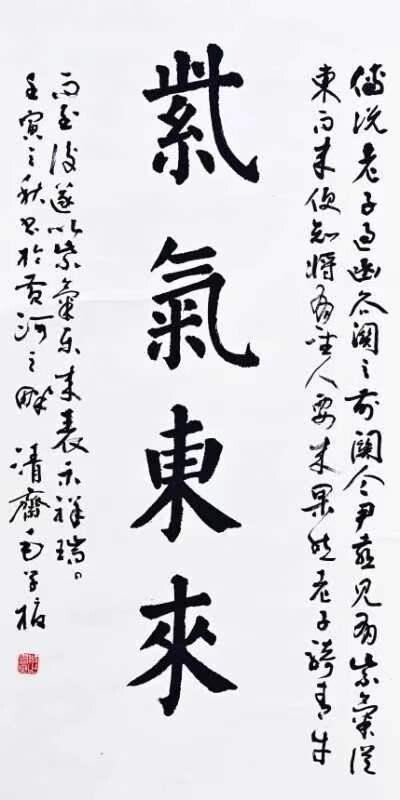 傳說老子過函谷關之前關令尹喜見有紫氣從
東而來便知將有聖人要來果然老子騎青牛
紫氣東來
而至後遂以紫氣東來表示祥瑞。
壬寅之秋書於黃河之畔 清齋毛學